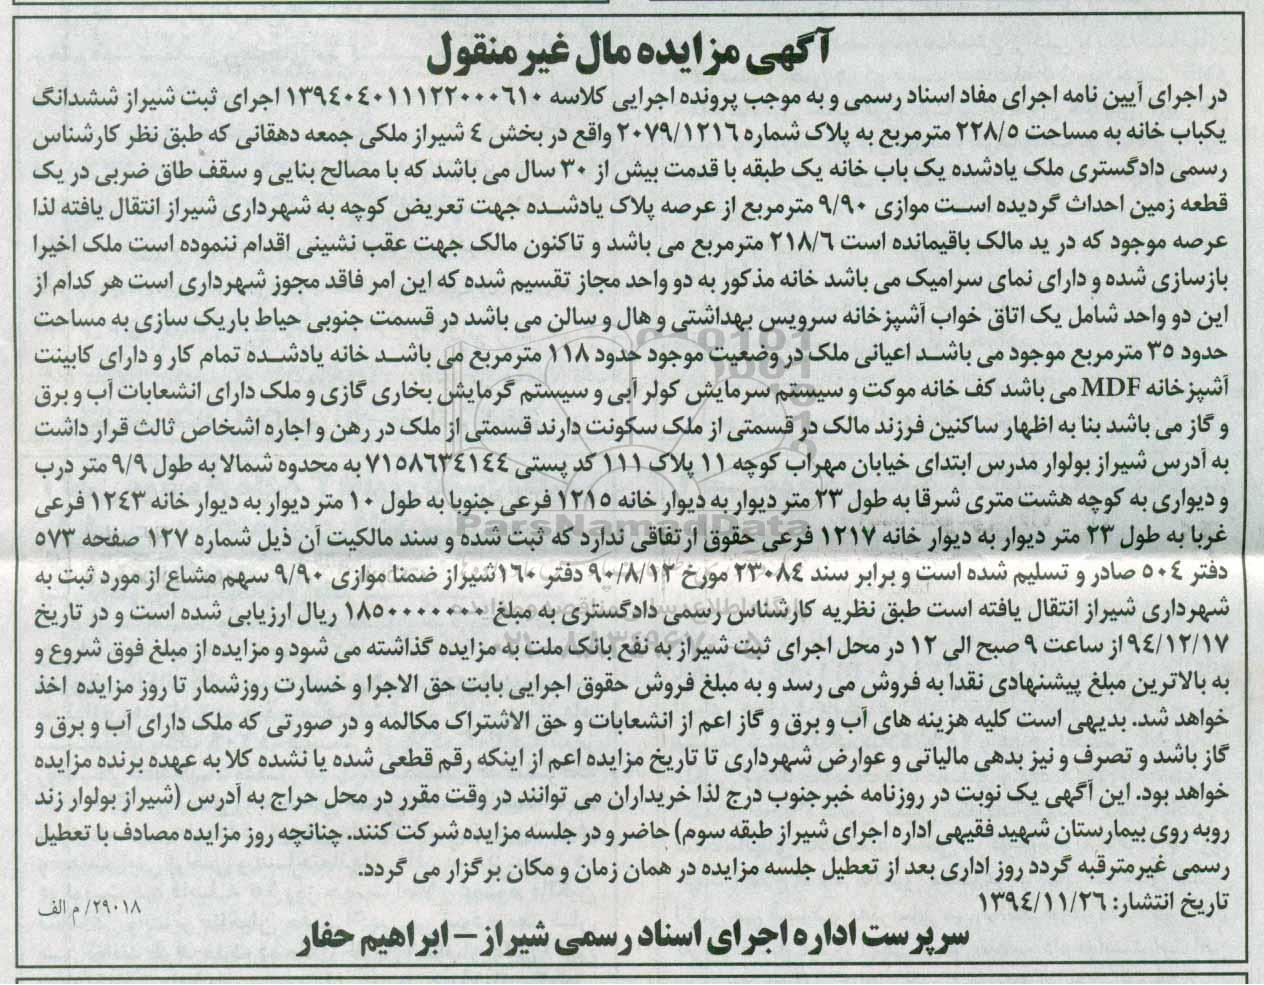 آگهی مزایده مال غیر منقول
در اجرای آیین نامه اجرای مفاد اسناد رسمی و به موجب پرونده اجرایی کلاسه ۱۳۹٤۰٤۰۱۱۱۲۲۰۰۰٦۱۰ اجرای ثبت شیراز ششدانگ
یکباب خانه به مساحت ۲۲۸/۵ مترمربع به پلاک شماره ۲۰۷۹/۱۲۱٦ واقع در بخش ٤ شیراز ملکی جمعه دهقانی که طبق نظر کارشناس
رسمی دادگستری ملک یادشده یک باب خانه یک طبقه با قدمت بیش از ۳۰ سال می باشد که با مصالح بنایی و سقف طاق ضربی در یک
قطعه زمین احداث گردیده است موازی ۹/۹۰ مترمربع از عرصه پلاک یادشده جهت تعریض کوچه به شهرداری شیراز انتقال یافته لذا
عرصه موجود که در ید مالک باقیمانده است ۲۱۸/٦ مترمربع می باشد و تاکنون مالک جهت عقب نشینی اقدام ننموده است ملک اخیرا
بازسازی شده و دارای نمای سرامیک می باشد خانه مذکور به دو واحد مجاز تقسیم شده که این امر فاقد مجوز شهرداری است هر کدام از
این دو واحد شامل یک اتاق خواب آشپزخانه سرویس بهداشتی و هال و سالن می باشد در قسمت جنوبی حیاط باریک سازی به مساحت
حدود ۳۵ مترمربع موجود می باشد اعیانی ملک در وضعیت موجود حدود ۱۱۸ مترمربع می باشد خانه یادشده تمام کار و دارای کابینت
آشپزخانه MDF می باشد کف خانه موکت و سیستم سرمایش کولر آبی و سیستم گرمایش بخاری گازی و ملک دارای انشعابات آب و برق
و گاز می باشد بنا به اظهار ساکنین فرزند مالک در قسمتی از ملک سکونت دارند قسمتی از ملک در رهن و اجاره اشخاص ثالث قرار داشت
به آدرس شیراز بولوار مدرس ابتدای خیابان مهراب کوچه ۱۱ پلاک ۱۱۱ کد پستی ۷۱۵۸٦۳٤۱٤٤ به محدوه شمالا به طول ۹/۹ متر درب
و دیواری به کوچه هشت متری شرقا به طول ۲۳ متر دیوار به دیوار خانه ۱۲۱۵ فرعی جنوبا به طول ۱۰ متر دیوار به دیوار خانه ۱۲٤۳ فرعی
غربا به طول ۲۳ متر دیوار به دیوار خانه ۱۲۱۷ فرعی حقوق ارتفاقی ندارد که ثبت شده و سند مالکیت آن ذیل شماره ۱۲۷ صفحه ۵۷۳
دفتر ۵۰٤ صادر و تسلیم شده است و برابر سند ۲۳۰۸٤ مورخ ۹۰/۸/۱۲ دفتر ۱٦۰ شیراز ضمنا موازی ۹/۹۰ سهم مشاع از مورد ثبت به
شهرداری شیراز انتقال یافته است طبق نظریه کارشناس رسمی دادگستری به مبلغ ۱۸۵۰۰۰۰۰۰۰ ریال ارزیابی شده است و در تاریخ
۹٤/۱۲/۱۷ از ساعت ۹ صبح الی ۱۲ در محل اجرای ثبت شیراز به نفع بانک ملت به مزایده گذاشته می شود و مزایده از مبلغ فوق شروع و
به بالاترین مبلغ پیشنهادی نقدا به فروش می رسد و به مبلغ فروش حقوق اجرایی بابت حق الاجرا و خسارت روزشمار تا روز مزایده اخذ
خواهد شد. بدیهی است کلیه هزینه های آب و برق و گاز اعم از انشعابات و حق الاشتراک مکالمه و در صورتی که ملک دارای آب و برق و
گاز باشد و تصرف و نیز بدهی مالیاتی و عوارض شهرداری تا تاریخ مزایده اعم از اینکه رقم قطعی شده یا نشده کلا به عهده برنده مزایده
خواهد بود. این آگهی یک نوبت در روزنامه خبرجنوب درج لذا خریداران می توانند در وقت مقرر در محل حراج به آدرس (شیراز بولوار زند
روبه روی بیمارستان شهید فقیهی اداره اجرای شیراز طبقه سوم) حاضر و در جلسه مزایده شرکت کنند. چنانچه روز مزایده مصادف با تعطیل
رسمی غیرمترقبه گردد روز اداری بعد از تعطیل جلسه مزایده در همان زمان و مکان برگزار می گردد.
تاریخ انتشار: ۱۳۹٤/۱۱/۲٦
۲۹۰۱۸/ م الف
سرپرست اداره اجرای اسناد رسمی شیراز – ابراهیم حفار
ParsNamadData